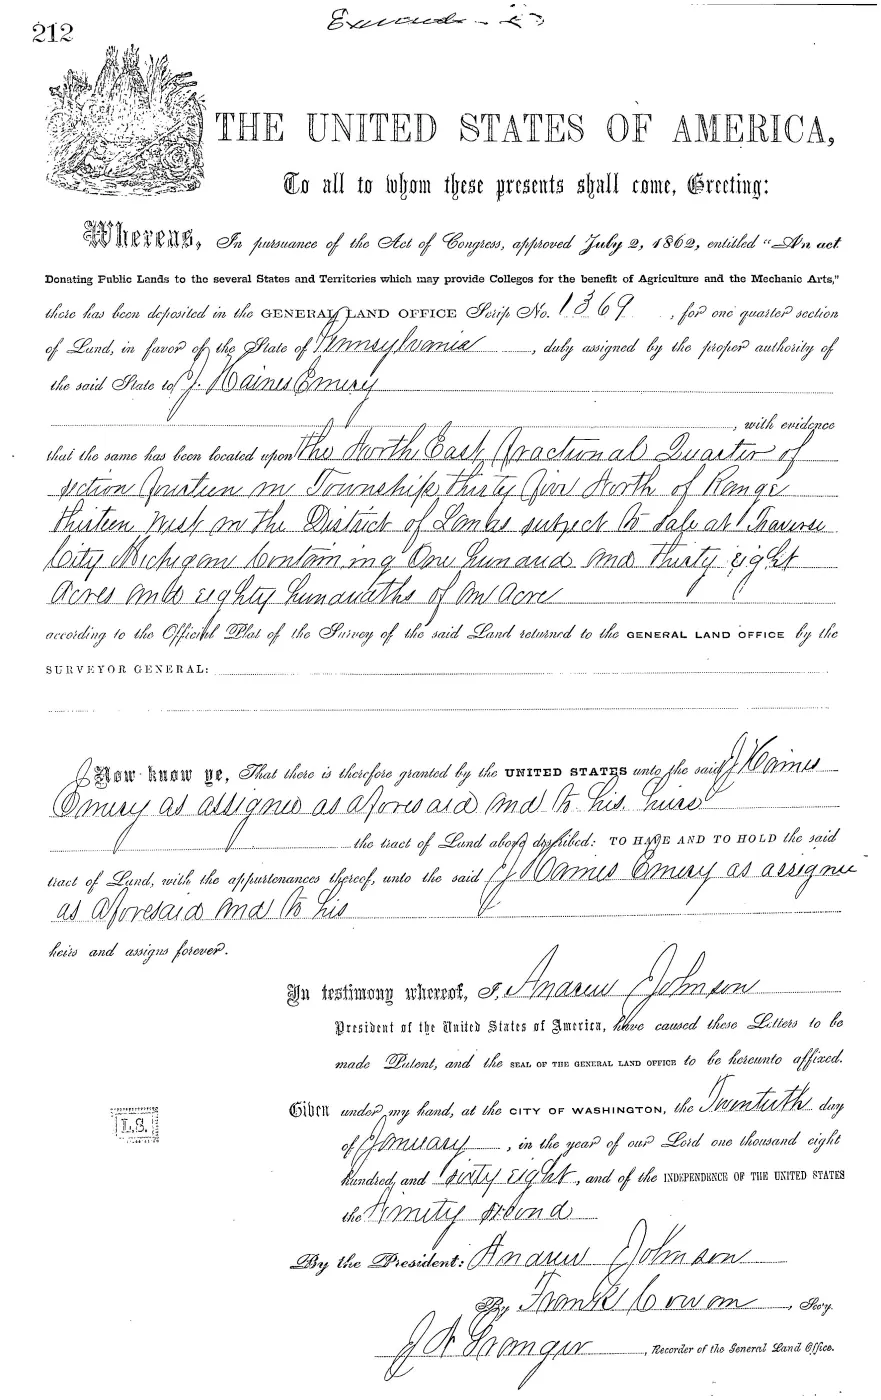 212
THE UNITED STATES OF AMERICA,
To all to whom these presents shall come, Greeting:
Whereas, In pursuance of the Act of Congress, approved July 2, 1862, entitled "An act
Donating Public Lands to the several States and Territories which may provide Colleges for the benefit of Agriculture and the Mechanic Arts,"
there has been deposited in the GENERAL LAND OFFICE Scrip No. 1369, for one quarter section
of Land, in favor of the State of Pennsylvania, duly assigned by the proper authority of
the said State to J. Haines Emery
, with evidence
that the same has been located upon the North East fractional Quarter of
section fourteen in Township thirty five North of Range
thirteen West in the District of Lands subject to sale at Traverse
City Michigan Containing One hundred and thirty eight
Acres and eighty hundredths of an Acre
according to the Official Plat of the Survey of the said Land returned to the GENERAL LAND OFFICE by the
SURVEYOR GENERAL:
Now know ye, That there is therefore granted by the UNITED STATES unto the said J Haines
Emery as assignee as aforesaid and to his heirs
the tract of Land above described: TO HAVE AND TO HOLD the said
tract of Land, with the appurtenances thereof, unto the said J Haines Emery as assignee
as aforesaid and to his
heirs and assigns forever.
In testimony whereof, I, Andrew Johnson
President of the United States of America, have caused these Letters to be
made Patent, and the SEAL OF THE GENERAL LAND OFFICE to be hereunto affixed.
Given under my hand, at the CITY OF WASHINGTON, the Twentieth day
L.S.
of January, in the year of our Lord one thousand eight
hundred and sixty eight, and of the INDEPENDENCE OF THE UNITED STATES
the Ninety second
By the President: Andrew Johnson
By Frank Cowan, Sec'y.
J N Granger, Recorder of the General Land Office.